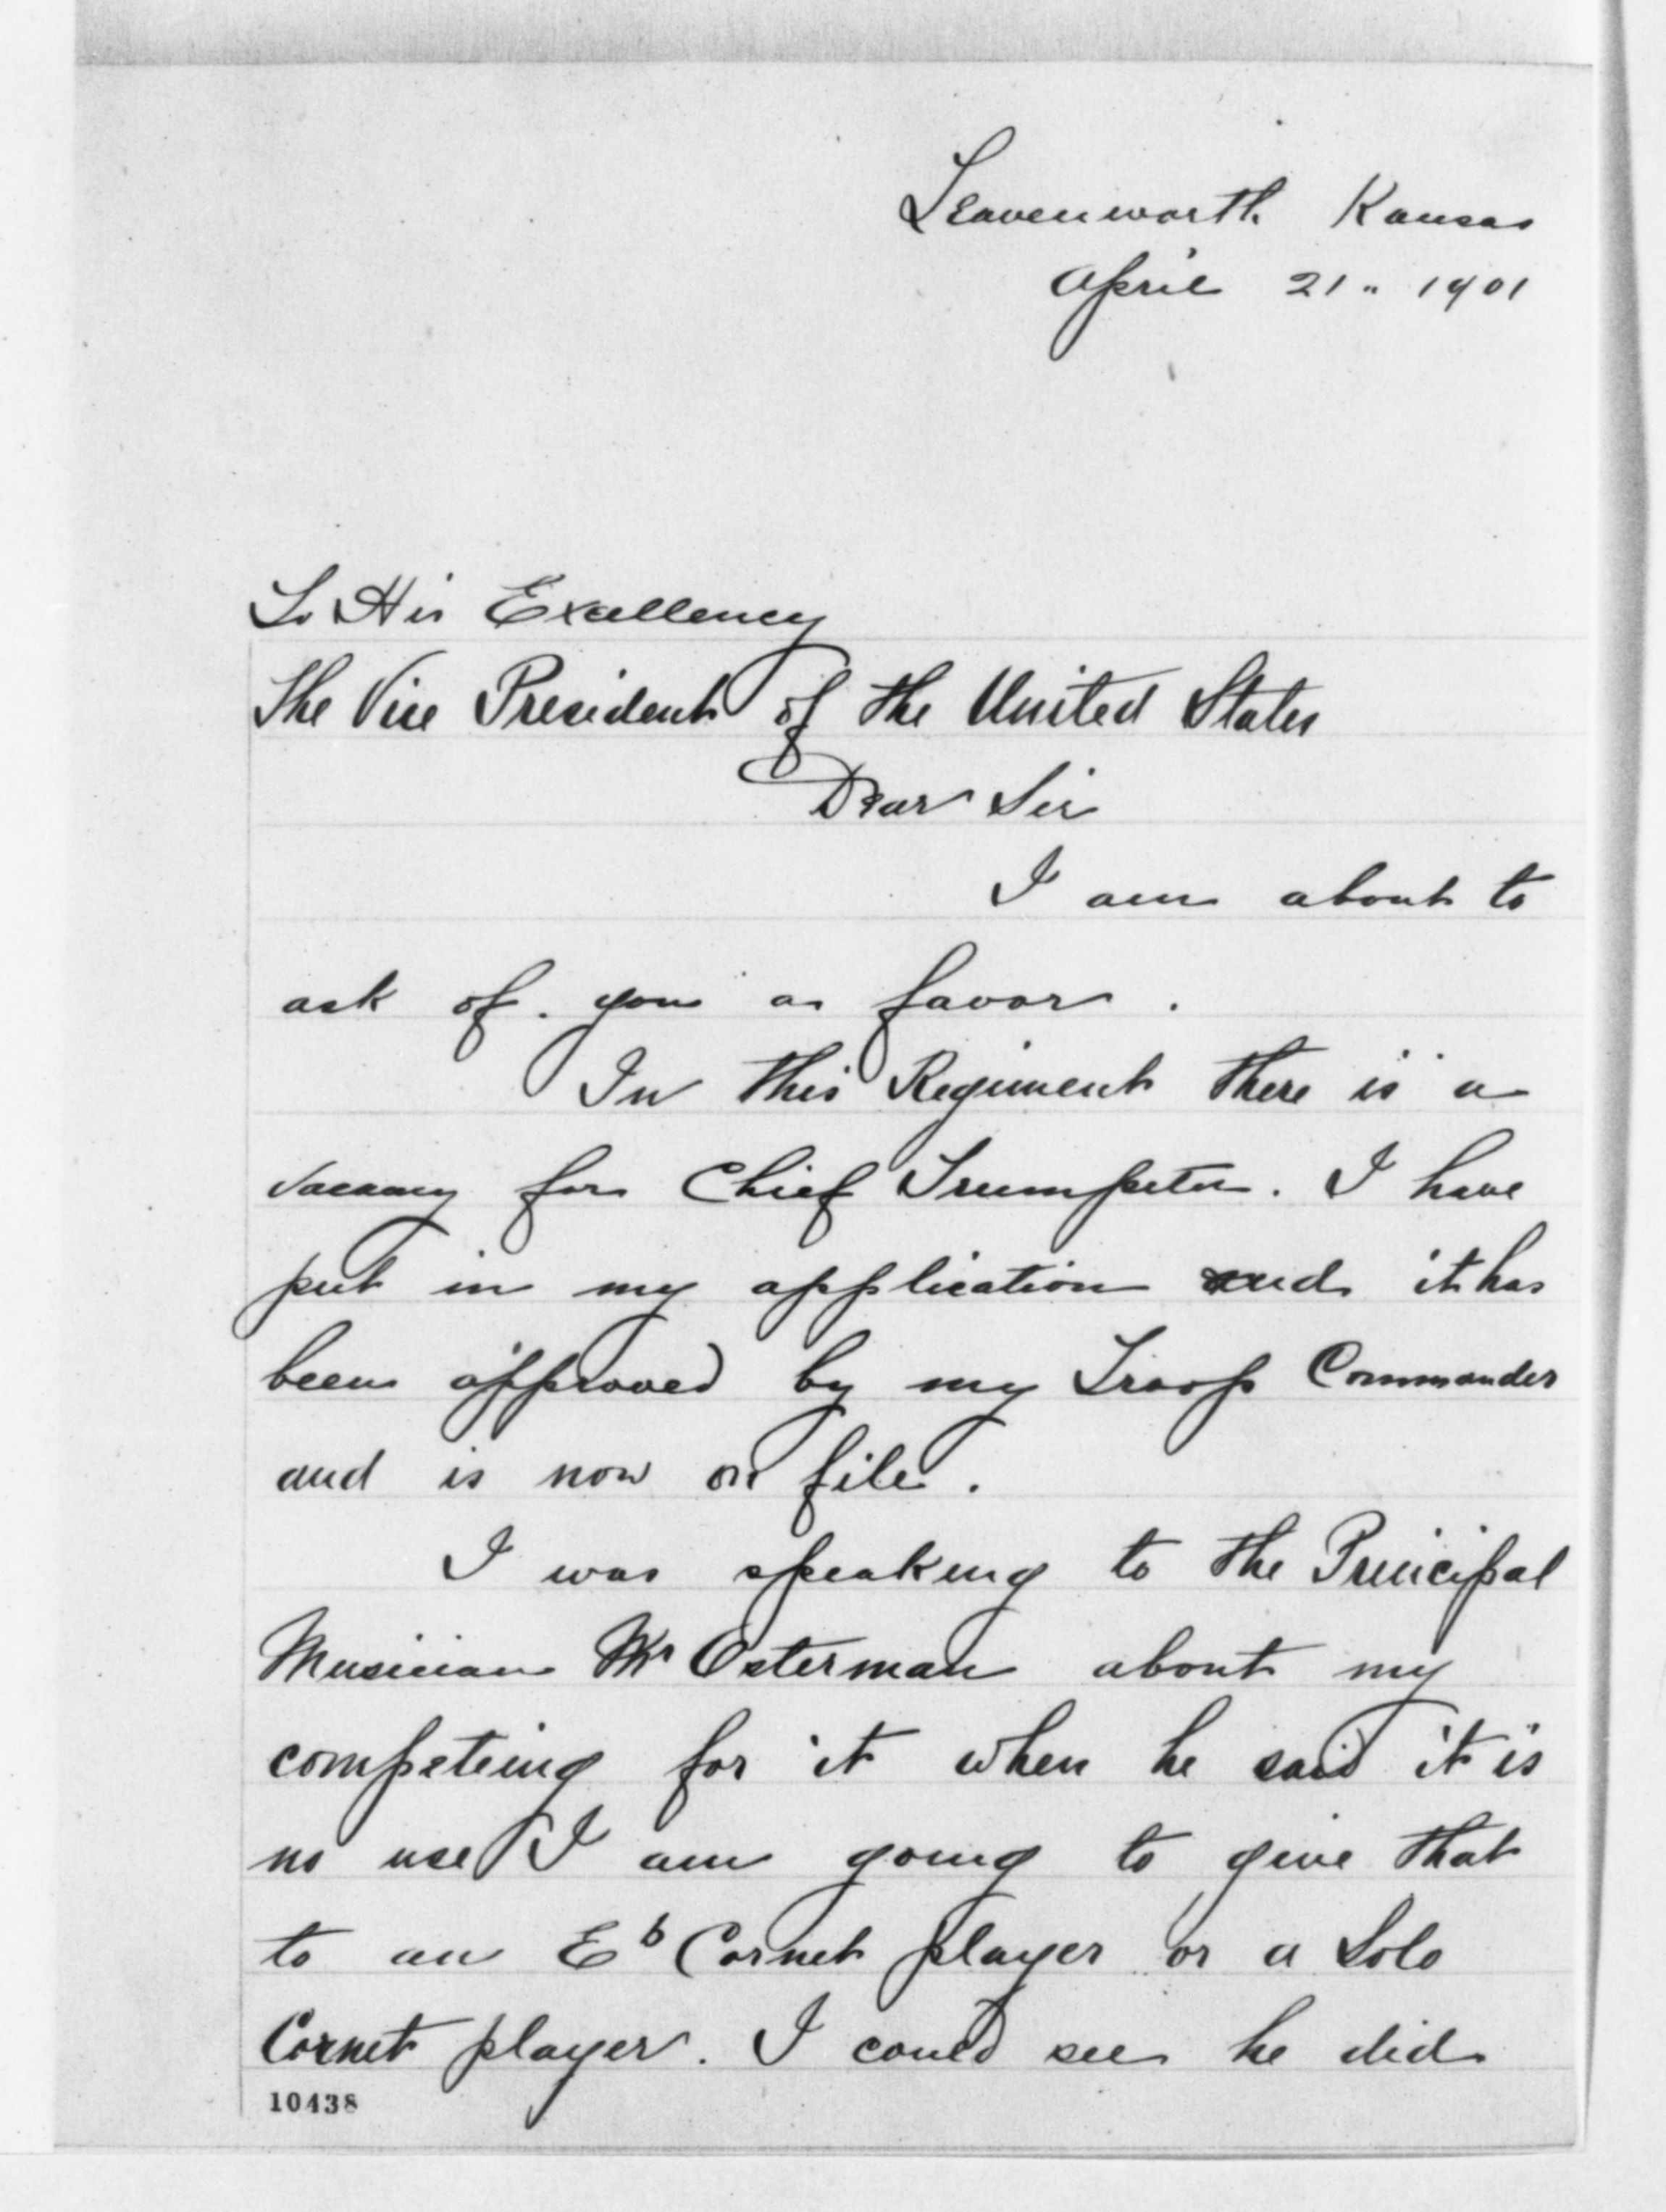 Leavenworth Kansas
April 21" 1901
To His Excellency
The Vice President of the United States
Dear Sir
I am about to
ask of you a favor.
In this Regiment there is a
vacancy for Chief Trumpeter. I have
put in my application and it has
been approved by my Troop Commander
and is now on file.
I was speaking to the Principal
Musician Mr Osterman about my
competeing for it when he said it is
no use I am going to give that
to an Eb Cornet player or a Solo
Cornet player. I could see he did
10438